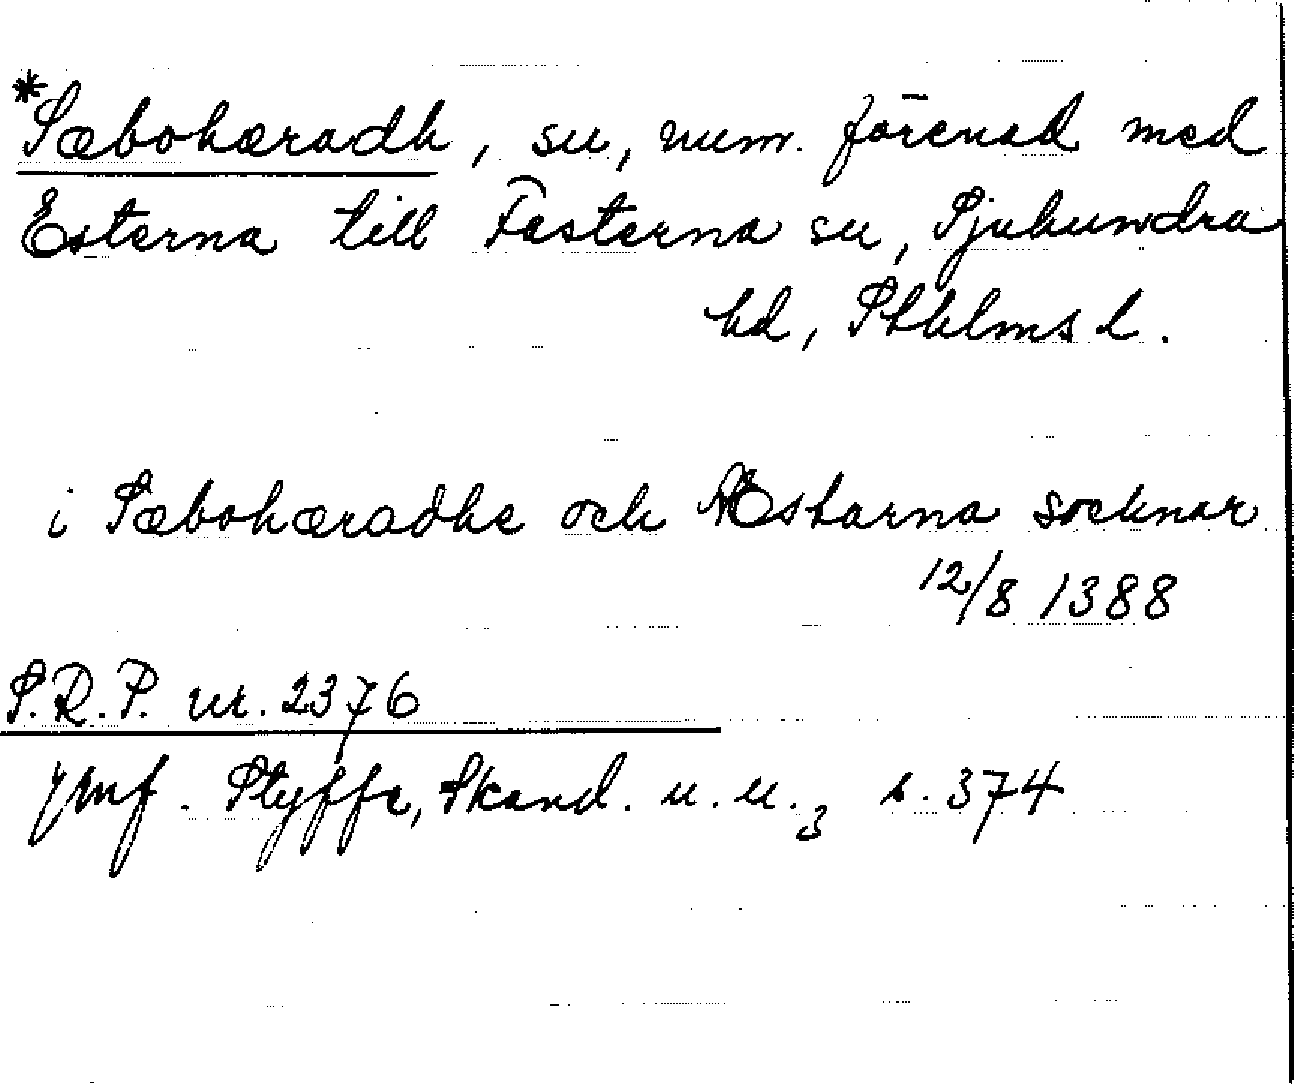 *Sæbohæradh, sn, num. förenad med
Esterna till Fasterna sn, Sjuhundra
hd, Sthlms l.
i Sæbohæradhe och Æstarna socknar
12/8 1388
S.R.P. nr. 2376
Jmf. Styffe, Skand. u. u.3 s. 374